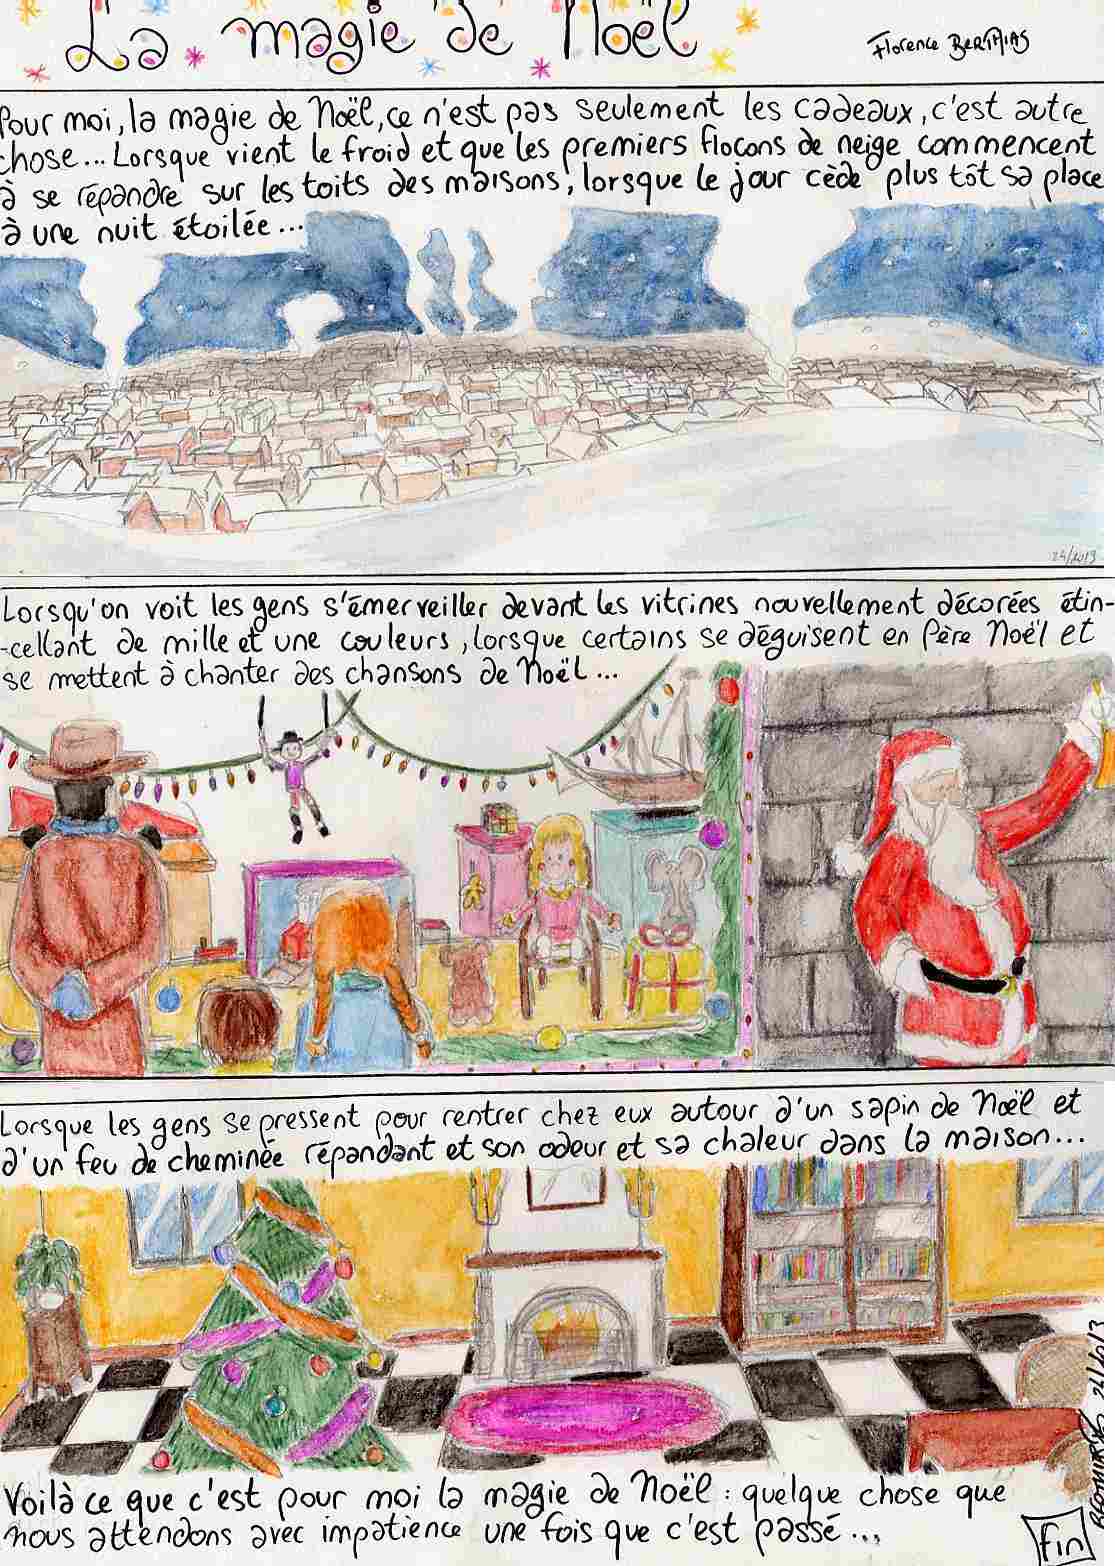 La magie de Noël
Florence BERTHIAS
Pour moi, la magie de Noël, ce n'est pas seulement les cadeaux, c'est autre
chose... Lorsque vient le froid et que les premiers flocons de neige commencent
à se répandre sur les toits des maisons, lorsque le jour cède plus tôt sa place
à une nuit étoilée...
Lorsqu'on voit les gens s'émerveiller devant les vitrines nouvellement décorées étin-
-cellant de mille et une couleurs, lorsque certains se déguisent en Père Noël et
se mettent à chanter des chansons de Noël...
Lorsque les gens se pressent pour rentrer chez eux autour d'un sapin de Noël et
d'un feu de cheminée répandant et son odeur et sa chaleur dans la maison...
Voilà ce que c'est pour moi la magie de Noël : quelque chose que
nous attendons avec impatience une fois que c'est passé...
Fin